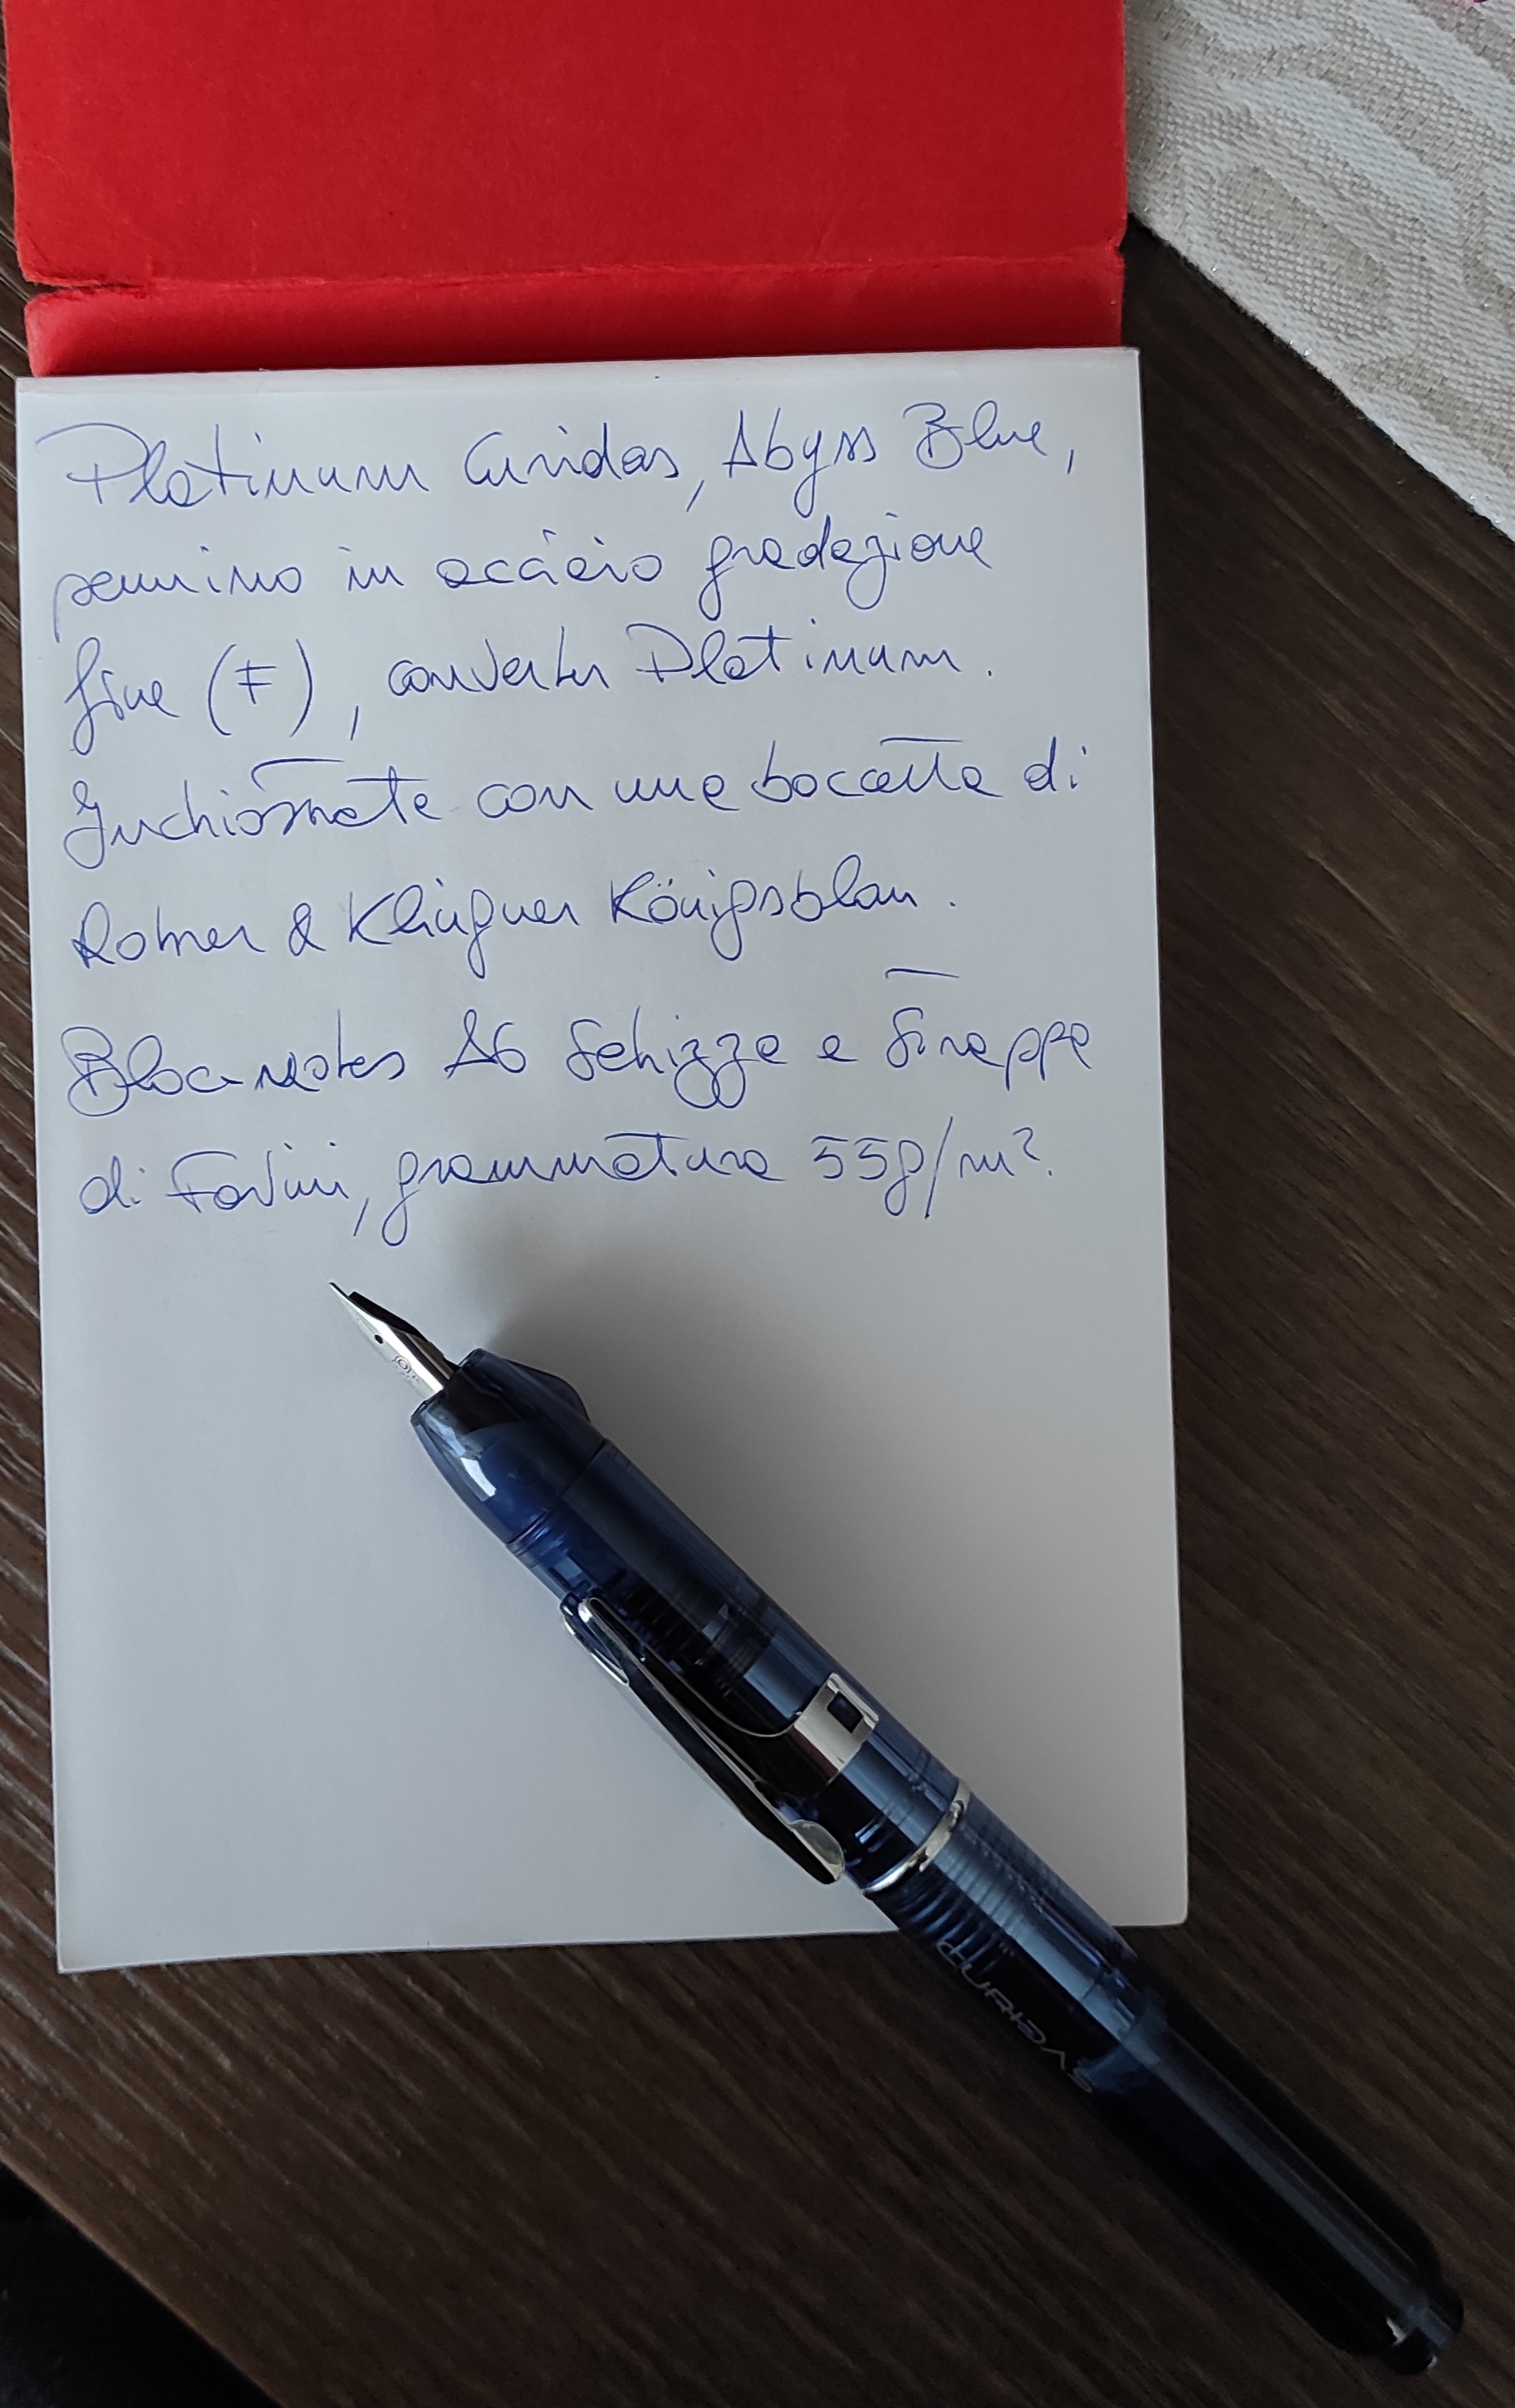 Platinum Curidas, Abyss Blue,
pennino in acciaio gradazione
fine (F), converter Platinum.
Inchiostrata con una boccetta di
Rohrer & Klingner Königsblau.
Bloc-notes A6 Schizza e Strappa
di Favini, grammatura 55g/m².
CURIDAS